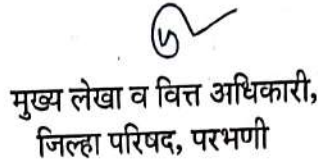 मुख्य लेखा व वित्त अधिकारी,
जिल्हा परिषद, परभणी